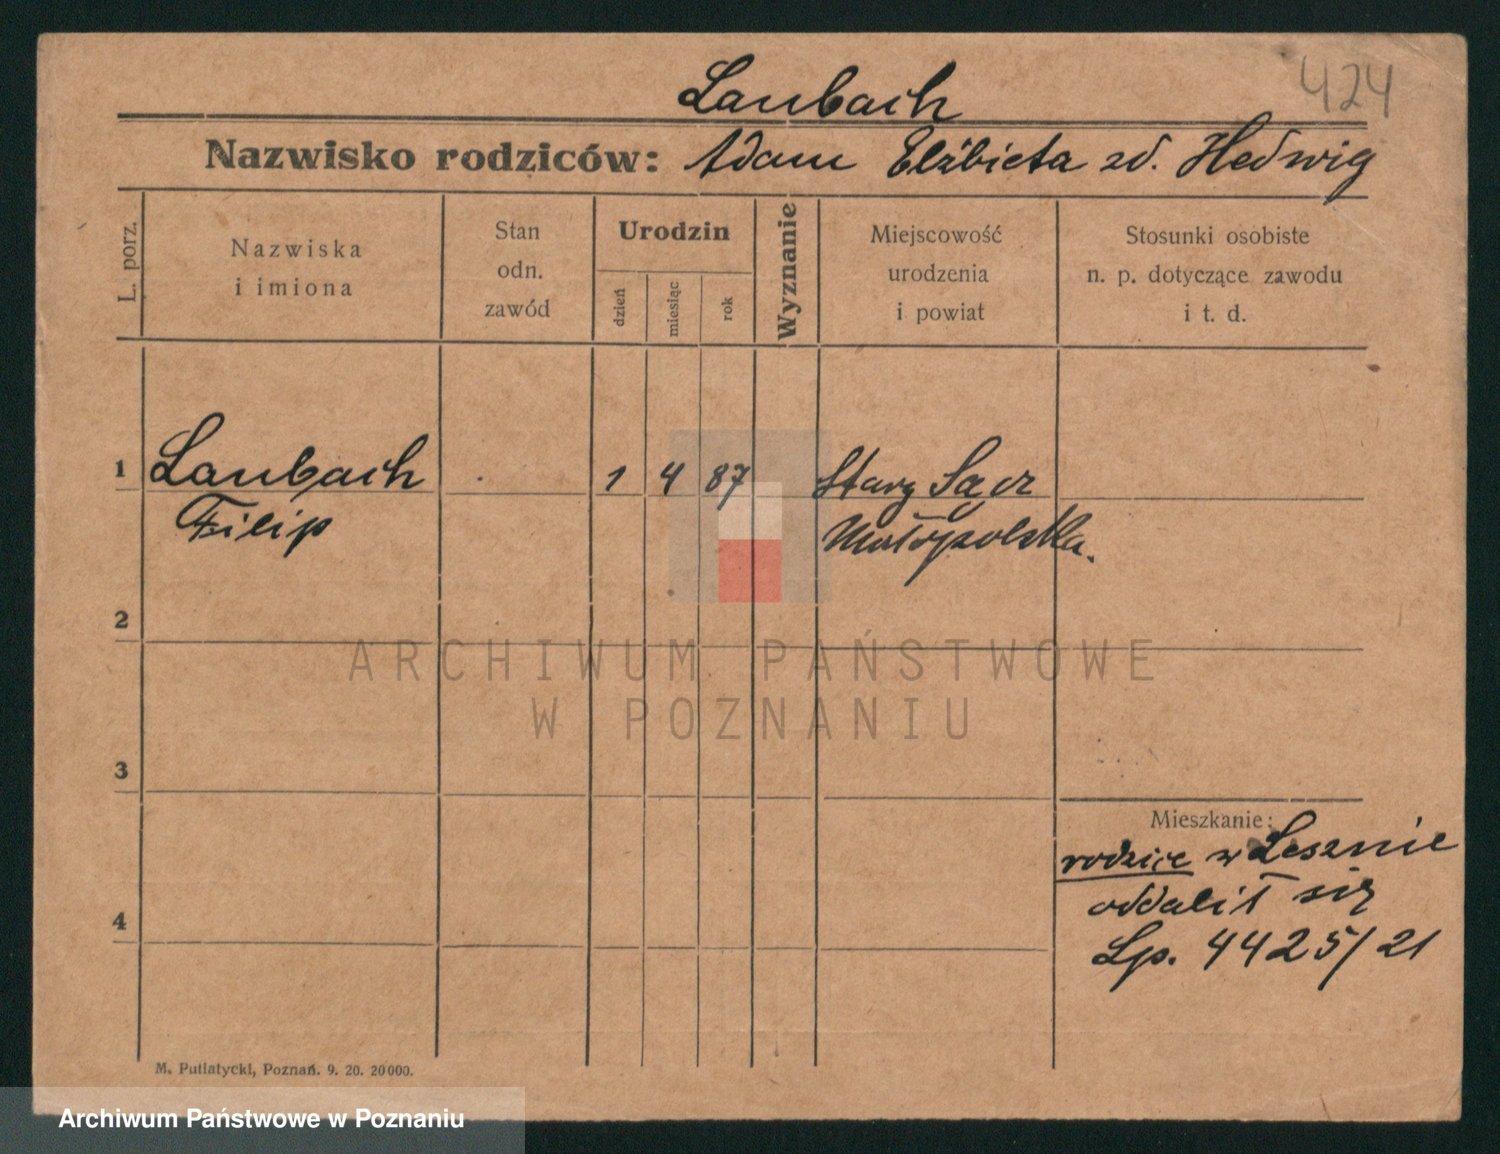 424
Laubach
Nazwisko rodziców: Adam Elżbieta zd. Hedwig
L. porz.
Nazwiska
i imiona
Stan
odn.
zawód
Urodzin
dzień
miesiąc
rok
Wyznanie
Miejscowość
urodzenia
i powiat
Stosunki osobiste
n. p. dotyczące zawodu
i t. d.
1 Laubach 1 4 87 Stary Sącz
Filip Małopolska.
2
ARCHIWUM PAŃSTWOWE
W POZNANIU
3
Mieszkanie:
rodzice w Lesznie
4 oddalił się
Lp. 4425/21
M. Putiatycki, Poznań. 9. 20. 20000.
Archiwum Państwowe w Poznaniu